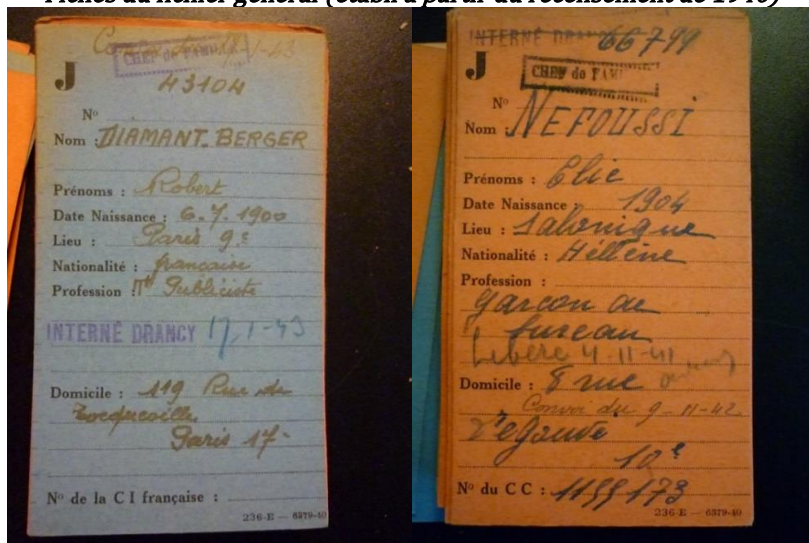 Fiches du fichier général (établi à partir du recensement de 1940)
CHEF de FAMILLE
J
43104
N°
Nom : DIAMANT-BERGER
Prénoms : Robert
Date Naissance : 6.7.1900
Lieu : Paris 9e
Nationalité : française
Profession : Publiciste
INTERNÉ DRANCY 17.1-43
Domicile : 119 Rue de
Tocqueville
Paris 17e
N° de la C I française :
236-E — 6379-40
INTERNÉ DRANCY 66799
J
CHEF de FAMILLE
N°
Nom NEFOUSSI
Prénoms : Elie
Date Naissance : 1904
Lieu : Salonique
Nationalité : Héllène
Profession :
garcon de
bureau
Libéré 4-11-41
Domicile : 8 rue
Convoi du 9-11-42
10e
N° du CC : 1199173
236-E — 6379-40